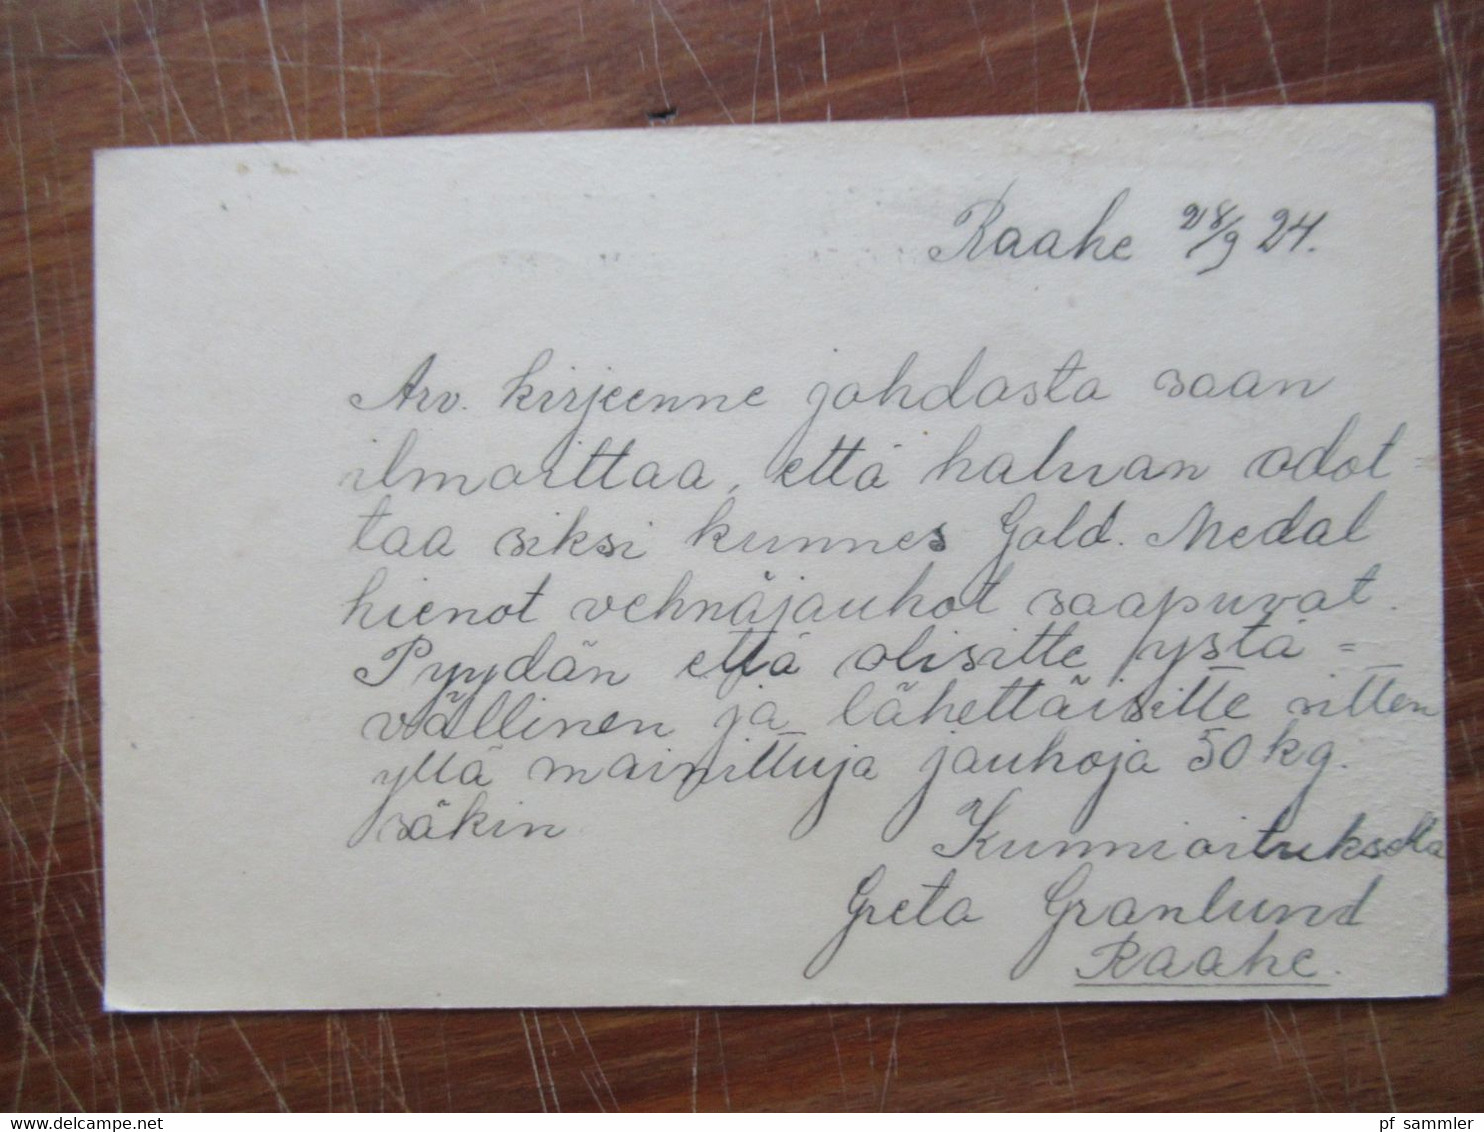 Raahe 28/9 24.
Arv. kirjeenne johdosta saan
ilmoittaa, että haluan odot=
taa siksi kunnes Gold. Medal
hienot vehnäjauhot saapuvat.
Pyydän että olisitte ystä=
vällinen ja lähettäisitte sitten
yllä mainittuja jauhoja 50 kg.
säkin
Kunnioituksella
Greta Granlund
Raahe.
pf sammler
www.delcampe.net